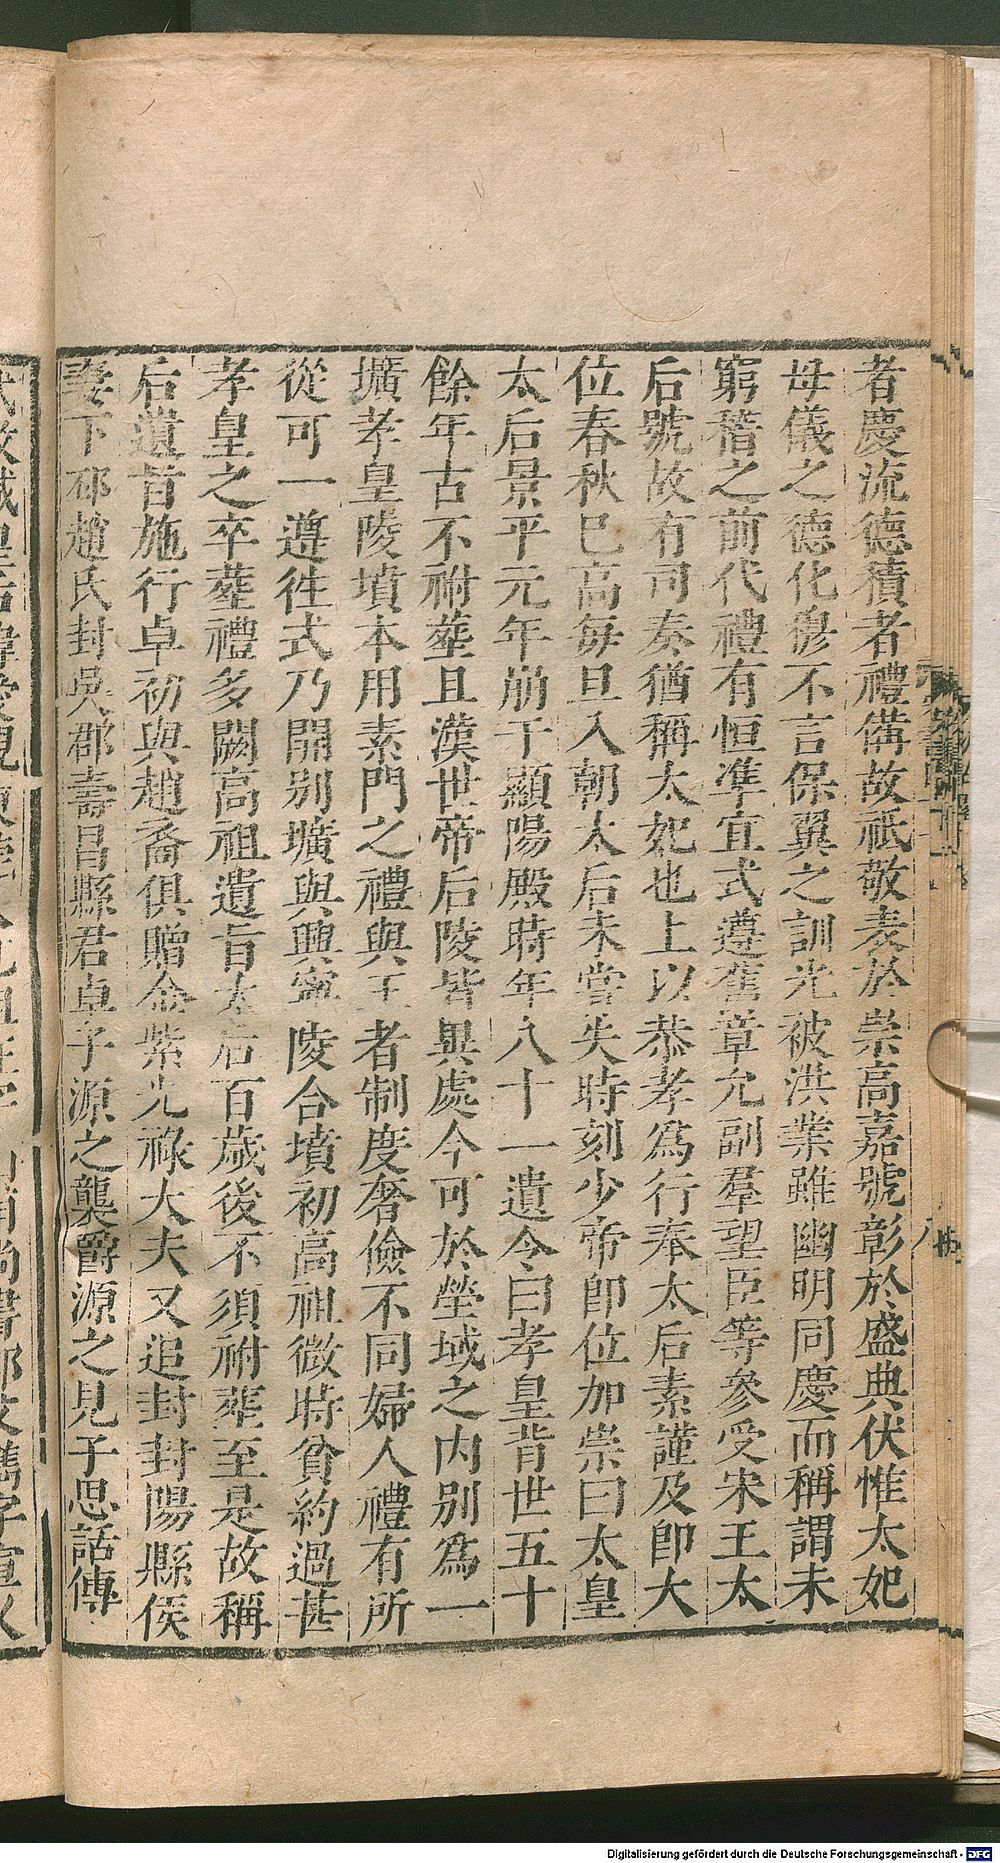 者慶流德積者禮備故祇敬表於崇高嘉號彰於盛典伏惟太妃
母儀之德化穆不言保翼之訓光被洪業雖幽明同慶而稱謂未
窮稽之前代禮有恒準宜式遵舊章允副羣望臣等參受宋王太
后號故有司奏猶稱太妃也上以恭孝爲行奉太后素謹及即大
位春秋巳高每旦入朝太后未嘗失時刻少帝即位加崇曰太皇
太后景平元年崩于顯陽殿時年八十一遺令曰孝皇背世五十
餘年古不祔塟且漢世帝后陵皆異處今可於塋域之内別爲一
壙孝皇陵墳本用素門之禮與王者制度奢儉不同婦人禮有所
從可一遵徃式乃開別壙與興寧陵合墳初高祖微時貧約過甚
孝皇之卒塟禮多闕高祖遺旨太后百歲後不須祔塟至是故稱
后遺旨施行卓初與趙裔俱贈金紫光祿大夫又追封封陽縣侯
妻下邳趙氏封吳郡壽昌縣君卓子源之襲爵源之見子思話傳
Digitalisierung gefördert durch die Deutsche Forschungsgemeinschaft - DFG